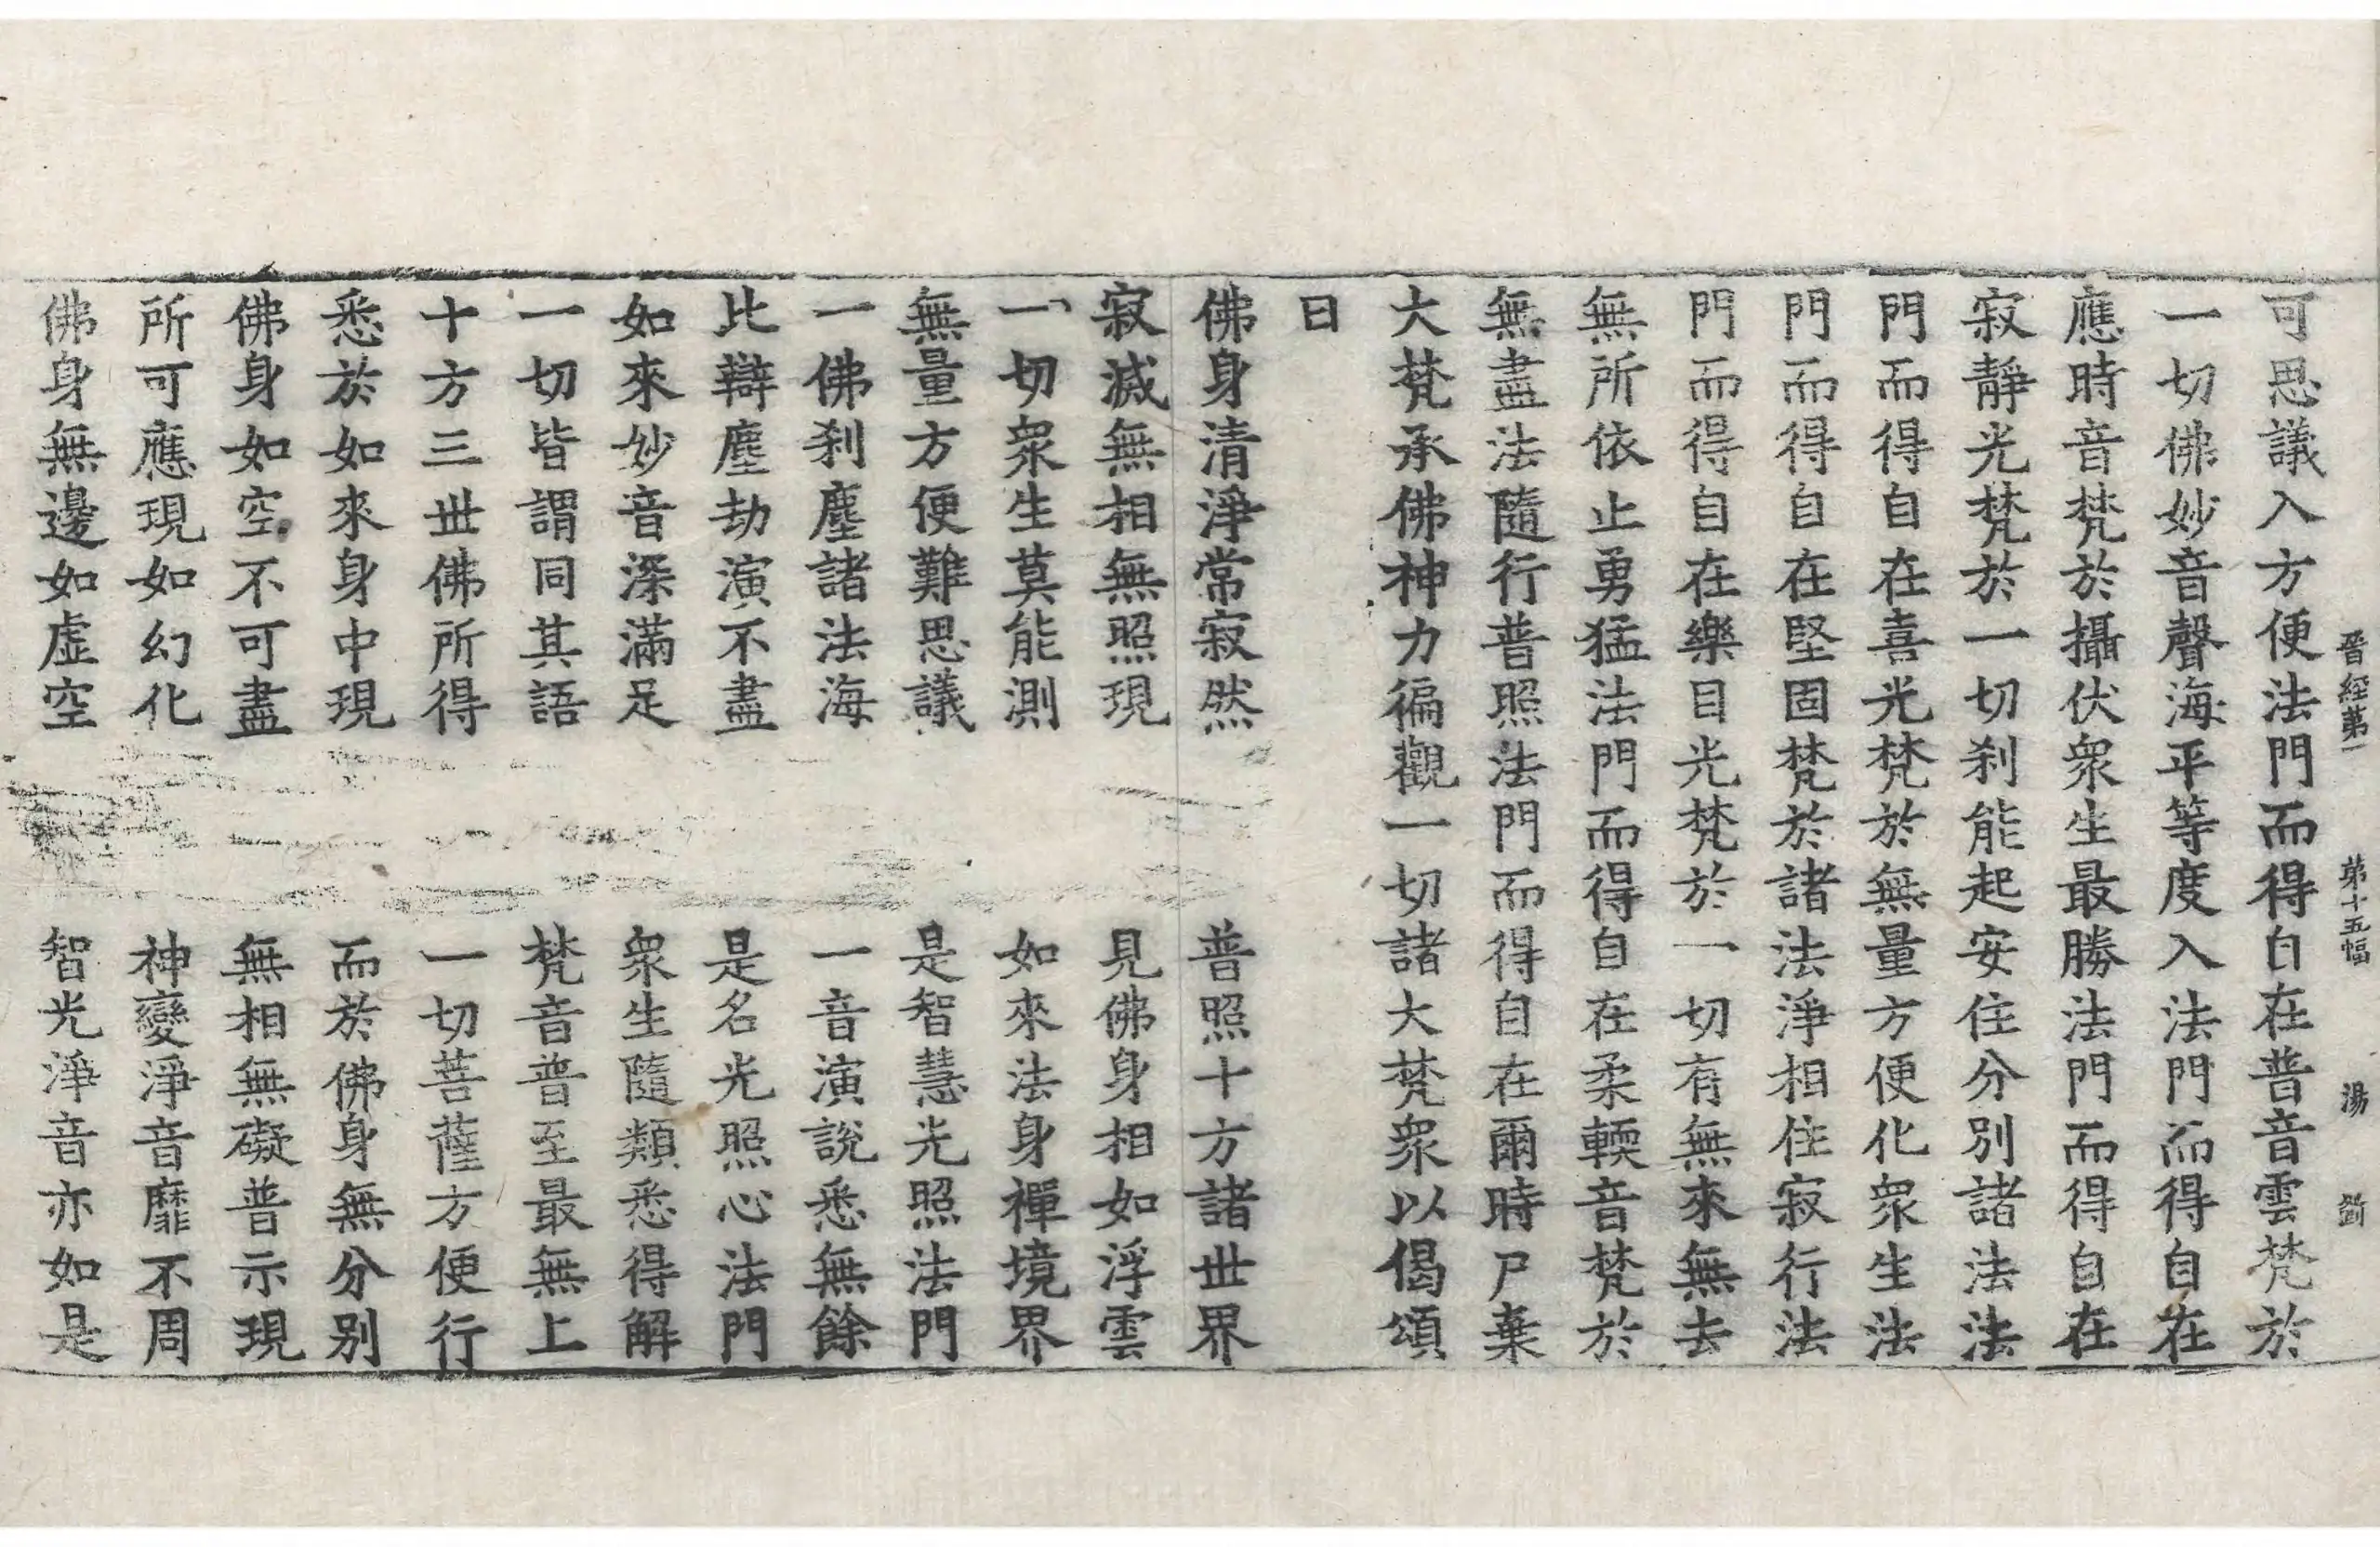 晉經第一 第十五幅 湯 劉
可思議入方便法門而得自在普音雲梵於
一切佛妙音聲海平等度入法門而得自在
應時音梵於攝伏衆生最勝法門而得自在
寂靜光梵於一切刹能起安住分別諸法法
門而得自在喜光梵於無量方便化衆生法
門而得自在堅固梵於諸法淨相住寂行法
門而得自在樂目光梵於一切有無來無去
無所依止勇猛法門而得自在柔輭音梵於
無盡法隨行普照法門而得自在爾時尸棄
大梵承佛神力徧觀一切諸大梵衆以偈頌
曰
佛身清淨常寂然 普照十方諸世界
寂滅無相無照現 見佛身相如浮雲
一切衆生莫能測 如來法身禪境界
無量方便難思議 是智慧光照法門
一佛刹塵諸法海 一音演説悉無餘
比辯塵劫演不盡 是名光照心法門
如來妙音深滿足 衆生隨類悉得解
一切皆謂同其語 梵音普至最無上
十方三世佛所得 一切菩薩方便行
悉於如來身中現 而於佛身無分別
佛身如空不可盡 無相無礙普示現
所可應現如幻化 神變淨音靡不周
佛身無邊如虛空 智光淨音亦如是